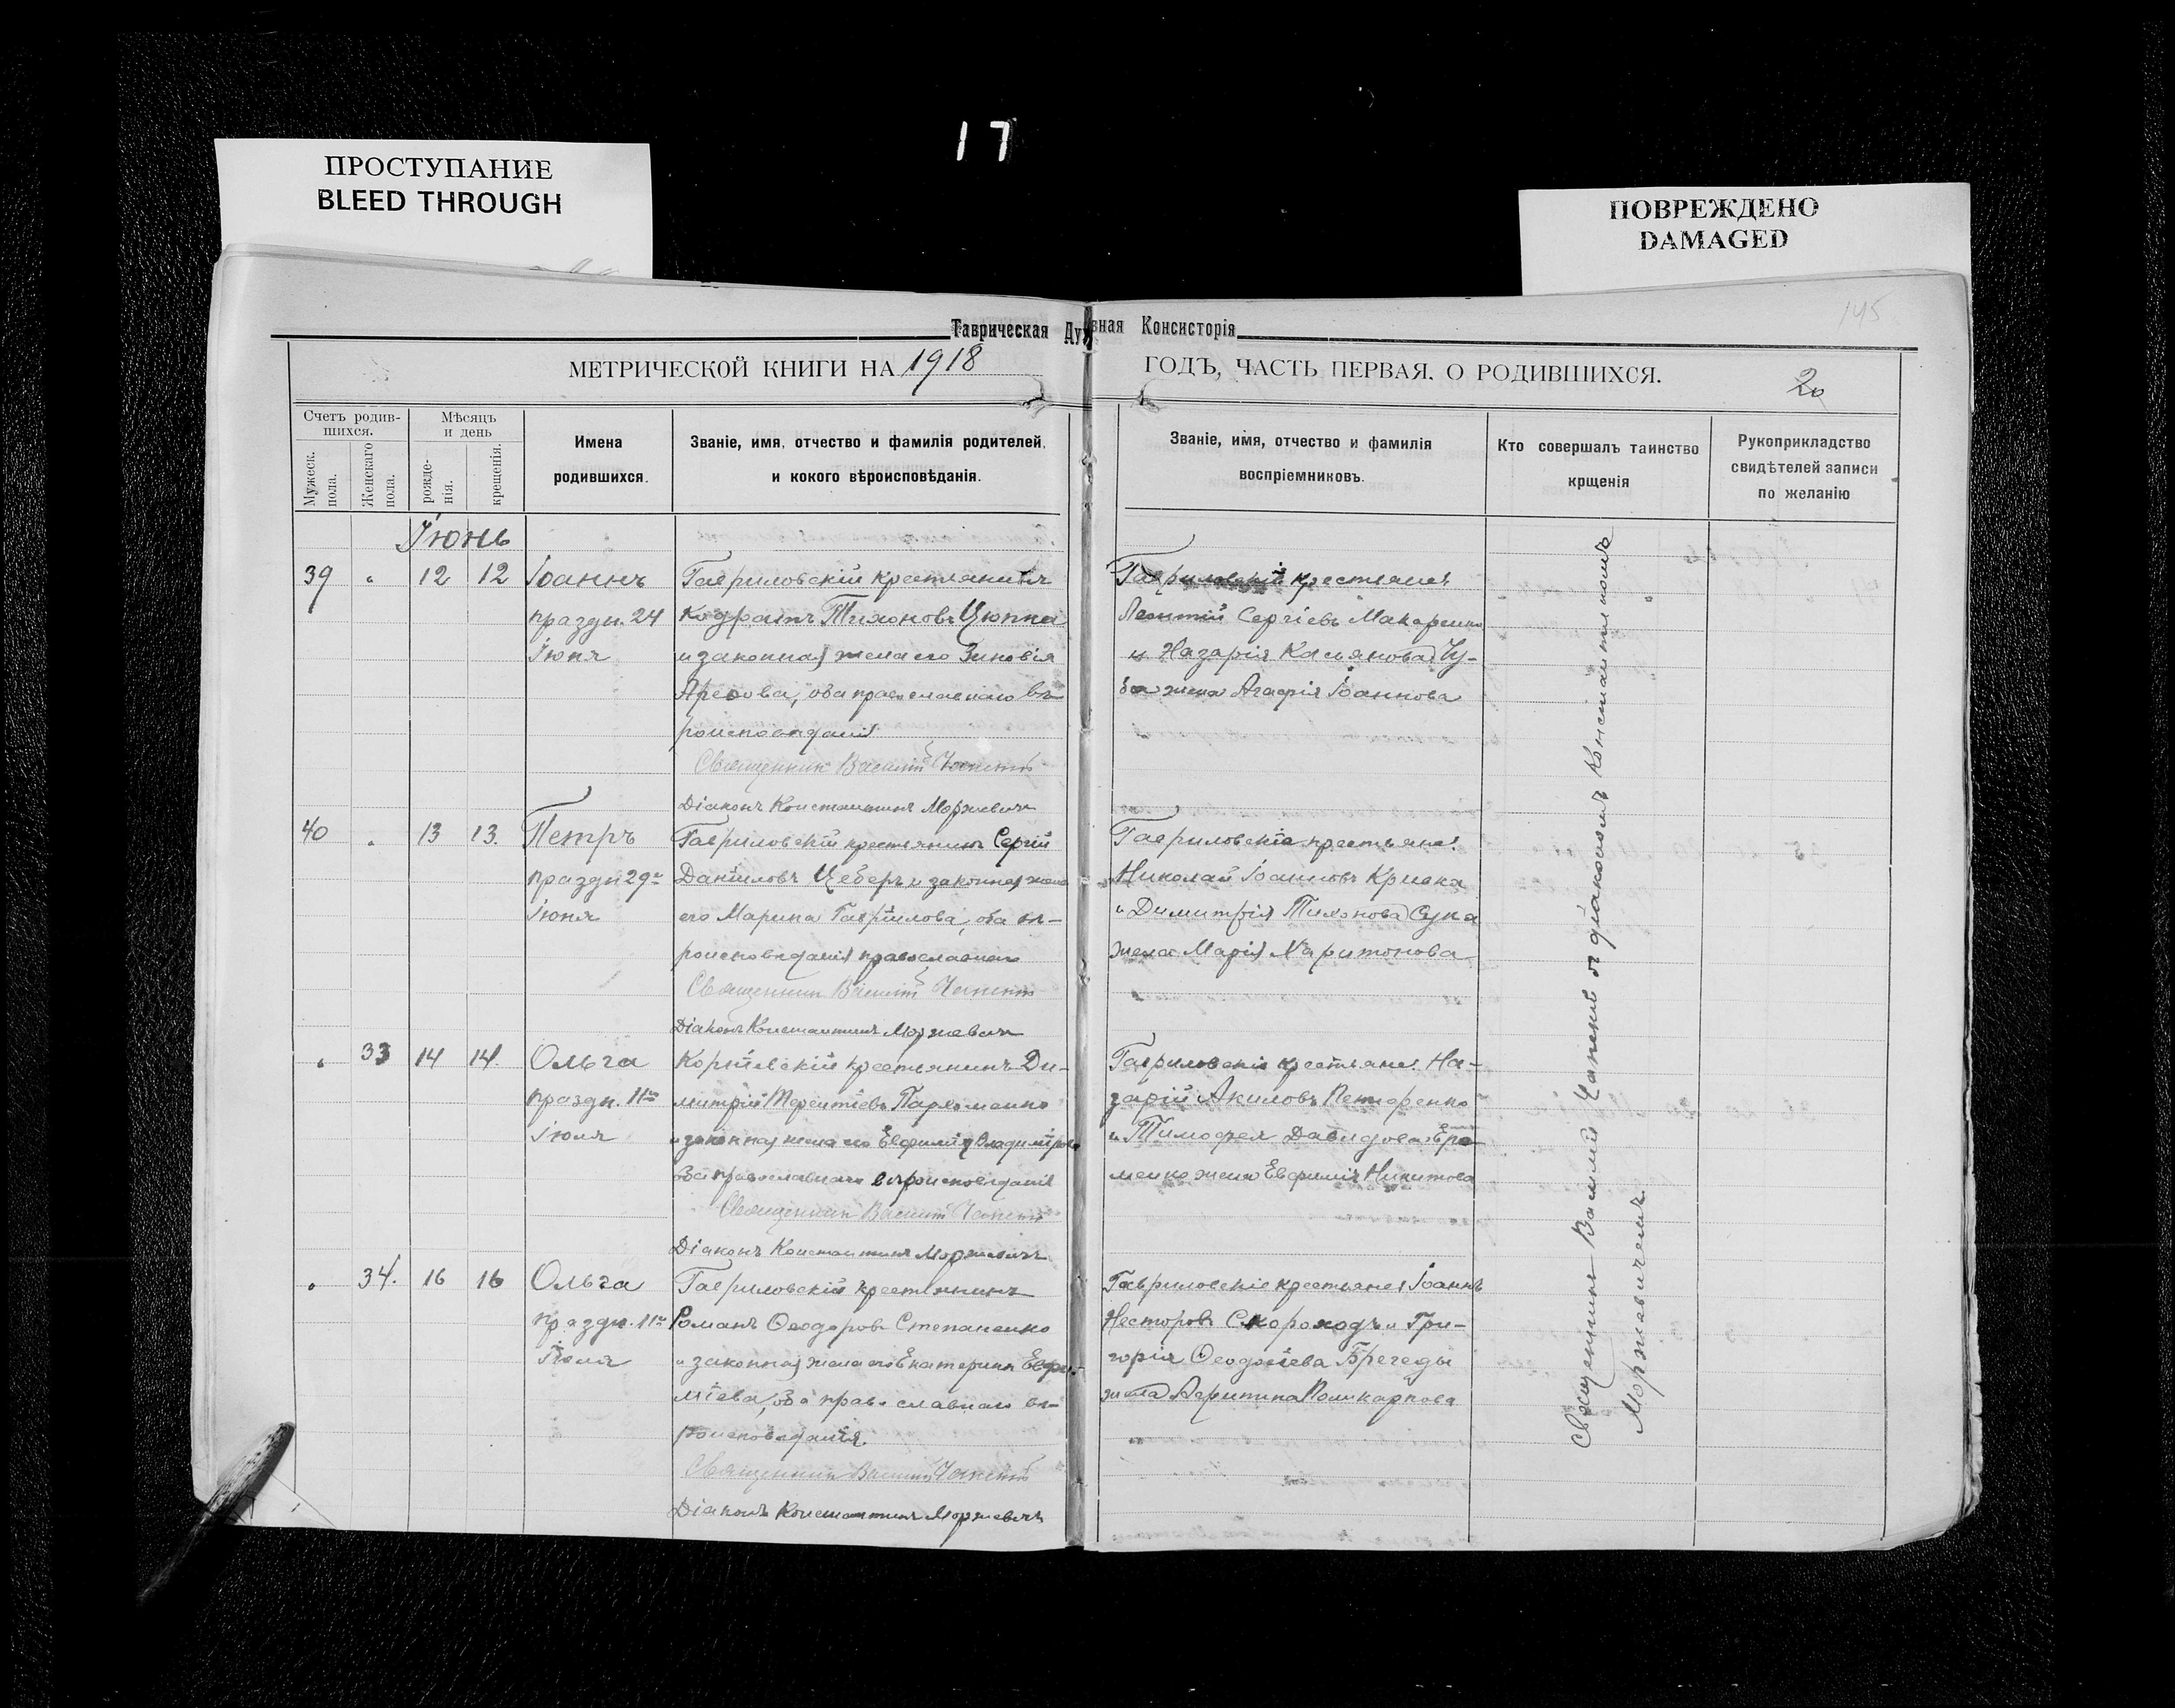 17
ПРОСТУПАНИЕ
BLEED THROUGH
ПОВРЕЖДЕНО
DAMAGED
145
Таврическая Духовная Консисторія
МЕТРИЧЕСКОЙ КНИГИ НА 1918
ГОДЪ, ЧАСТЬ ПЕРВАЯ. О РОДИВШИХСЯ.
20
Счетъ родив-
шихся.
Мужеск.
пола.
Женскаго
пола.
Мѣсяцъ
и день
рожде-
нія.
крещенія.
Имена
родившихся.
Званіе, имя, отчество и фамилія родителей,
и кокого вѣроисповѣданія.
Званіе, имя, отчество и фамилія
воспріемниковъ.
Кто совершалъ таинство
крщенія
Рукоприкладство
свидѣтелей записи
по желанію
Іюнь
39 " 12 12 Іоаннъ
праздн. 24
Іюня
Гавриловскій крестьянинъ
Кодратъ Тихоновъ Цюпка
и законная жена его Зиновія
Арефова, оба православнаго вѣ
роисповѣданія
Священникъ Василій
Діаконъ Константинъ Моржевичъ
крестьяне:
Леонтій Сергіевъ Макаренко
и Назарія Касьянова Чу-
ба жена Агафія Іоаннова
40 " 13 13. Петръ
праздн 29го
Іюня
Гавриловскій крестьянинъ Сергій
Даніиловъ Цеберъ и законная жена
его Марина Гавріилова, оба вѣ-
роисповѣданія православнаго
Священникъ Василій
Діаконъ Константинъ Моржевичъ
Гавриловскіе крестьяне:
Николай Іоанновъ Кривка
и Димитрія Тихонова Сука
жена Марія Харитонова
" 33 14 14. Ольга
праздн. 11го
Іюля
крестьянинъ Ди-
митрій Терентіевъ Пархоменко
и законная жена его Евфимія Владимірова
оба православнаго вѣроисповѣданія
Священникъ Василій
Діаконъ Константинъ Моржевичъ
Гавриловскіе крестьяне: На-
зарій Акиловъ
и Тимофея Давидова Ере-
менко жена Евфимія Никитова
" 34. 16 16 Ольга
праздн. 11го
Іюля
Гавриловскій крестьянинъ
Романъ Ѳеодоровъ Степаненко
и законная жена его Екатерина Евфи-
міева, оба православнаго вѣ-
роисповѣданія.
Священникъ Василій
Діаконъ Константинъ Моржевичъ
Гавриловскіе крестьяне: Іоаннъ
Несторовъ Скороходъ и Гри-
горія Ѳеодосіева Брегеды
жена Поликарпова
Священникъ Василій съ діакономъ Константиномъ
Моржевичемъ.